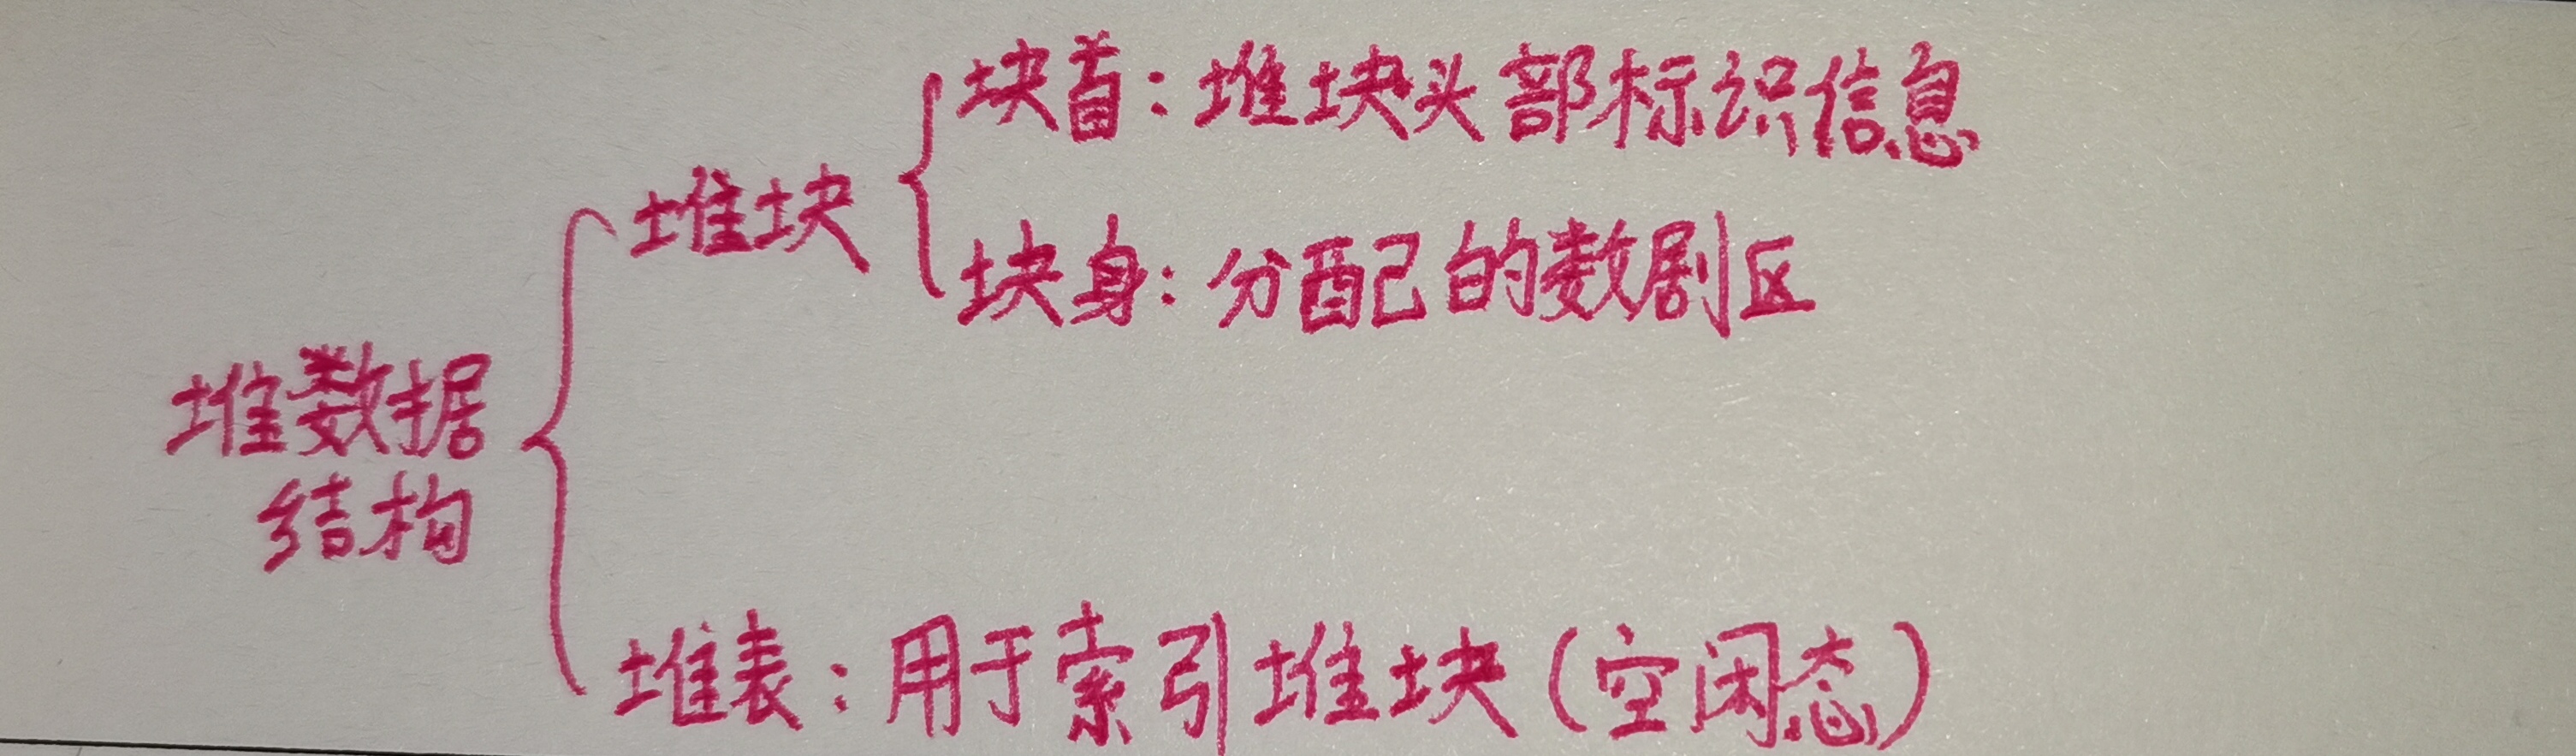 块首：堆块头部标识信息
堆块
块身：分配的数剧区
堆数据
结构
堆表：用于索引堆块（空闲态）